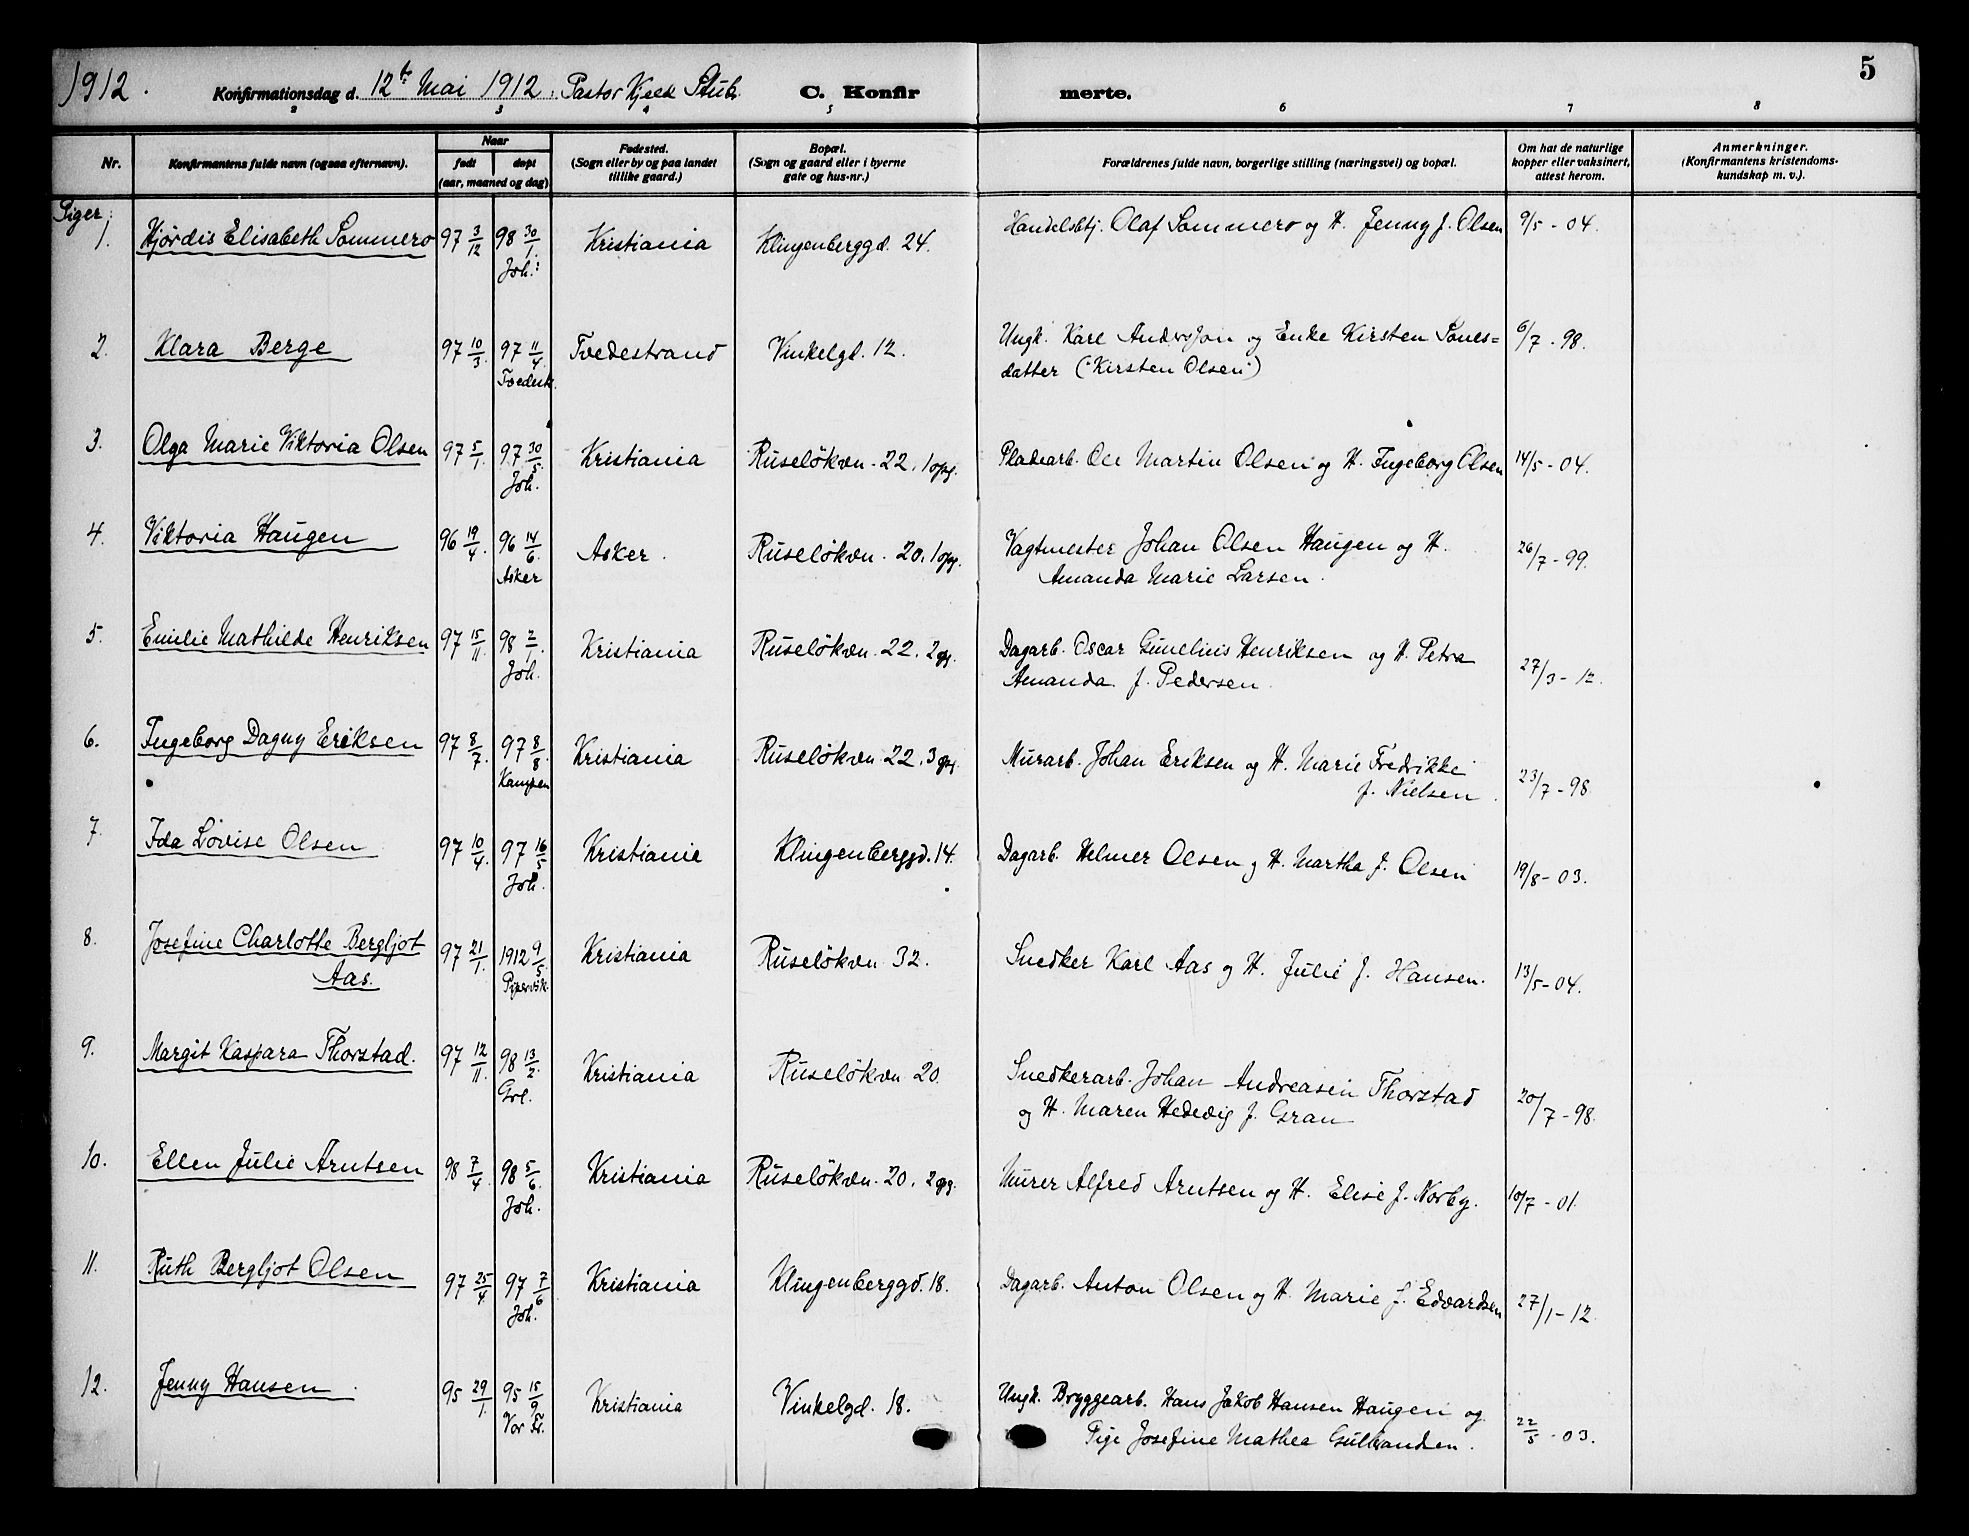 1912.
Konfirmationsdag d. 12te Mai 1912. Pastor Kjeld Stub. C. Konfirmerte. 5
2 3 4 5 6 7 8
Nr.
Konfirmantens fulde navn (ogsaa efternavn).
Naar
født døpt
(aar, maaned og dag)
Fødested.
(Sogn eller by og paa landet
tillike gaard.)
Bopæl.
(Sogn og gaard eller i byerne
gate og hus-nr.)
Forældrenes fulde navn, borgerlige stilling (næringsvei) og bopæl.
Om hat de naturlige
kopper eller vaksinert,
attest herom.
Anmerkninger.
(Konfirmantens kristendoms-
kundskap m. v.).
Piger:
1. Hjørdis Elisabeth Sommero 97 3/12 98 30/1. Kristiania Klingenberggd. 24. Handelsbtj. Olaf Sommero og H. Jenny f. Olsen 9/5 - 04.
Joh.:
2. Klara Berge 97 10/3. 97 11/4. Tvedestrand Vinkelgd. 12. Ungk. Karl Andersson og Enke Kirsten Sones= 6/7 - 98.
Tvedestr. datter (Kirsten Olsen)
3. Olga Marie Viktoria Olsen 97 5/1. 97 30/5. Kristiania Ruseløkvn. 22, 1 opg. Pladearb. Ole Martin Olsen og H. Ingeborg Olsen 14/5 - 04.
Joh.
4. Viktoria Haugen 96 19/4. 96 14/6. Asker. Ruseløkvn. 20, 1 opg. Vagtmester Johan Olsen Haugen og H. 26/7 - 99.
Asker Amanda Marie Larsen.
5. Emilie Mathilde Henriksen 97 15/11. 98 2/1. Kristiania Ruseløkvn. 22, 2 opg. Dagarb. Oscar Gunelius Henriksen og H. Petra 27/3 - 12.
Joh. Amanda f. Pedersen.
6. Ingeborg Dagny Eriksen 97 8/7. 97 8/8. Kristiania Ruseløkvn. 22, 3 opg. Murarb. Johan Eriksen og H. Marie Fredrikke 23/7 - 98
Kampen f. Nielsen.
7. Ida Lovise Olsen 97 10/4. 97 16/5 Kristiania Klingenberggd. 14. Dagarb. Helmer Olsen og H. Martha f. Olsen 19/8 - 03.
Joh.
8. Josefine Charlotte Bergljot 97 21/1. 1912 9/5. Kristiania Ruseløkvn 32. Snedker Karl Aas og H. Julie f. Hansen. 13/5 - 04.
Aas. Pipervik.
9. Margit Kaspara Thorstad. 97 12/11. 98 13/2. Kristiania Ruseløkvn 20. Snedkerarb. Johan Andreasen Thorstad 20/7 - 98.
Grl. og H. Maren Hedevig f. Gran
10. Ellen Julie Arntsen 98 7/4. 98 5/6. Kristiania Ruseløkvn. 20, 2 opg. Murer Alfred Arntsen og H. Elise f. Norby. 10/7 - 01.
Joh.
11. Ruth Bergljot Olsen 97 25/4. 97 7/6 Kristiania Klingenberggd. 18. Dagarb. Anton Olsen og H. Marie f. Edvardsen 27/1 - 12.
Joh.
12. Jenny Hansen. 95 29/1. 95 15/9 Kristiania Vinkelgd. 18. Ungk. Bryggearb. Hans Jakob Hansen Haugen og 22/5 - 03.
Vor Fr. Pige Josefine Mathea Gulbranden.